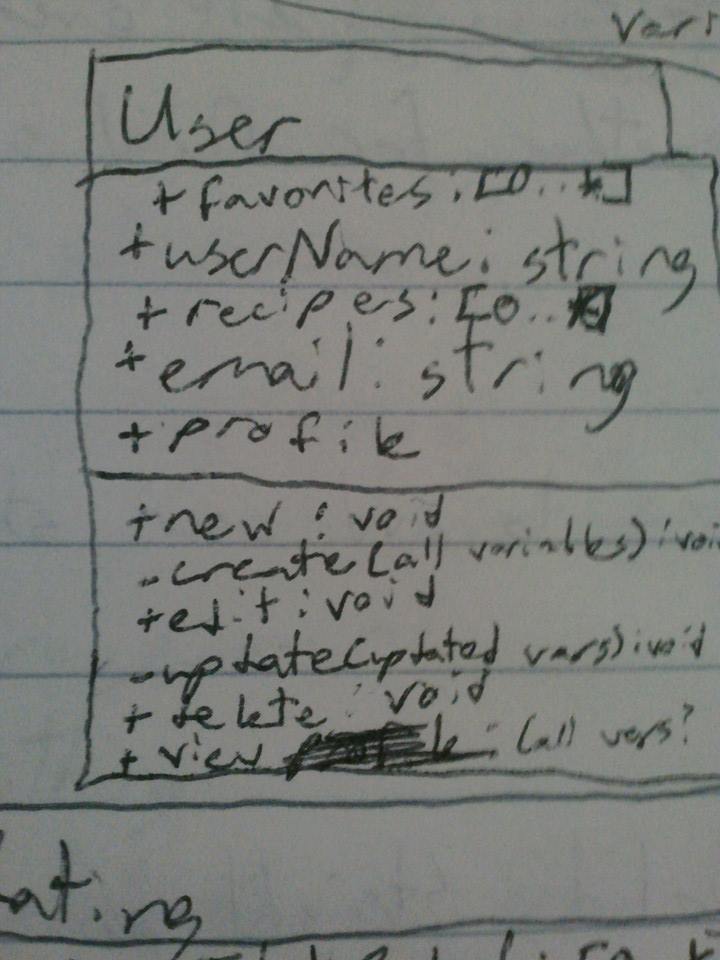 User
+ favorites : [0..*]
+ userName : string
+ recipes : [0..*]
+ email : string
+ profile
+ new : void
- create (all variables) : void
+ edit : void
- update (updated vars) : void
+ delete : void
+ view : (all vars?
ating